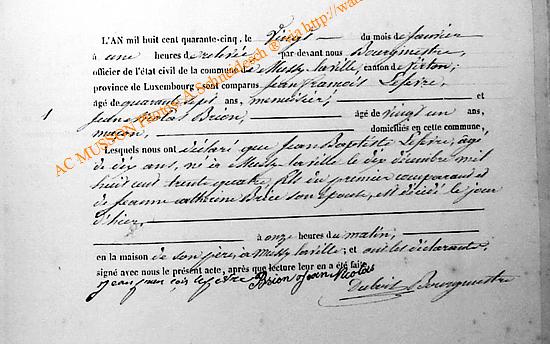 L'AN mil huit cent quarante-cinq, le vingt du mois de février
à une heures de relevée par devant nous Bourgmestre,
officier de l'état civil de la commune de Mussy-la-ville, canton de Virton,
province de Luxembourg sont comparus Jean François Lefèvre,
âgé de quarante sept ans, menuisier; et
1 Jean Nicolas Brion, âgé de vingt un ans,
maçon, domiciliés en cette commune,
Lesquels nous ont déclaré que Jean Baptiste Lefèvre, âgé
de dix ans, né à Mussy la ville le dix décembre mil
huit cent trente quatre fils du premier comparant et
de Jeanne Catherine son épouse, est décédé le jour
d'hier,
à onze heures du matin,
en la maison de son père, à Mussy la ville; et ont les déclarants
signé avec nous le présent acte, après que lecture leur en a été faite.
jean fran cois lefevre Brion jean Nicolas
Bourgmestre
AC MUSSON Photos: A Schneidesch ® via http://wa